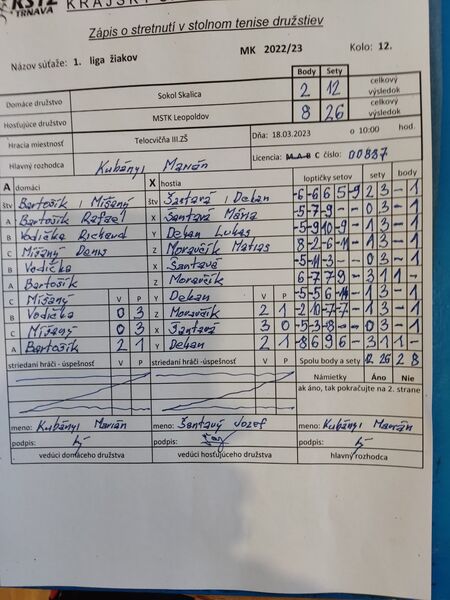 KSTZ
TRNAVA
KRAJSKÝ
Zápis o stretnutí v stolnom tenise družstiev
MK 2022/23 Kolo: 12.
Názov súťaže: 1. liga žiakov
Body Sety
Domáce družstvo Sokol Skalica 2 12 celkový výsledok
Hosťujúce družstvo MSTK Leopoldov 8 26 celkový výsledok
Hracia miestnosť Telocvičňa III.ZŠ Dňa: 18.03.2023 o 10:00 hod.
Hlavný rozhodca Kubányi Marián Licencia: M A B C číslo: 00837
A domáci X hostia loptičky setov sety body
štv Bartošík, Mišaný štv Šantavá, Dekan -6 -6 6 5 -9 2 3 - 1
A Bartošík Rafael X Šantavá Mária -5 -7 -9 - - 0 3 - 1
B Vodička Richard Y Dekan Lukas -5 -9 10 -9 - 1 3 - 1
C Mišaný Denis Z Moravčík Matias 8 -2 -6 -11 - 1 3 - 1
B Vodička X Šantavá -5 -11 -3 - - 0 3 - 1
A Bartošík Z Moravčík 6 -7 7 9 - 3 1 1 -
C Mišaný V P Y Dekan V P -5 -5 6 - 1 3 - 1
B Vodička 0 3 Z Moravčík 2 1 -2 10 -7 -7 - 1 3 - 1
C Mišaný 0 3 X Šantavá 3 0 -5 -3 -8 - - 0 3 - 1
A Bartošík 2 1 Y Dekan 2 1 -8 6 9 6 - 3 1 1 -
striedaní hráči - úspešnosť striedaní hráči - úspešnosť Spolu body a sety 12 26 2 8
Námietky Áno Nie
ak áno, tak pokračujte na 2. strane
meno: Kubányi Marián meno: Šantavý Jozef meno: Kubányi Marián
podpis: podpis: podpis:
vedúci domáceho družstva vedúci hosťujúceho družstva hlavný rozhodca